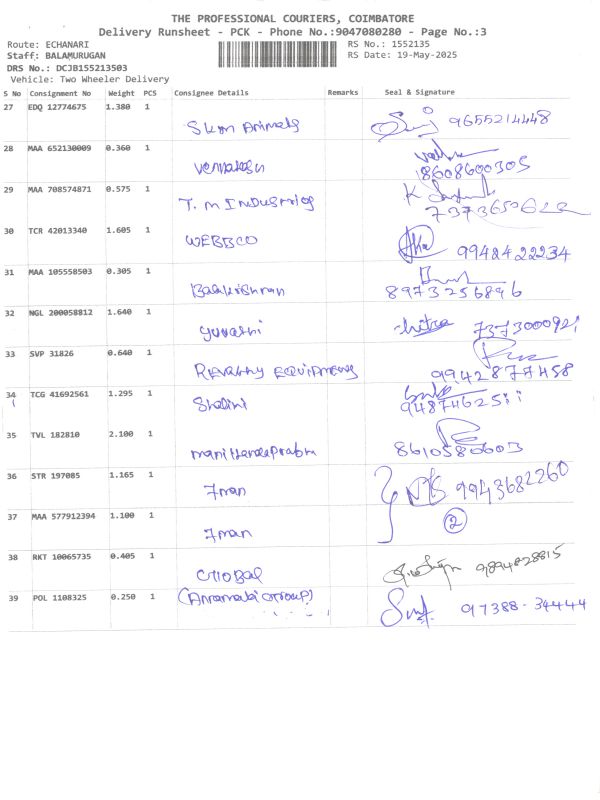 THE PROFESSIONAL COURIERS, COIMBATORE
Delivery Runsheet - PCK - Phone No.:9047080280 - Page No.:3
Route: ECHANARI RS No.: 1552135
Staff: BALAMURUGAN RS Date: 19-May-2025
DRS No.: DCJB155213503
Vehicle: Two Wheeler Delivery
S No Consignment No Weight PCS Consignee Details Remarks Seal & Signature
27 EDQ 12774675 1.380 1
SKM Animals 9655214448
28 MAA 652130009 0.360 1
Venkatesh 8608600305
29 MAA 708574871 0.575 1
T. M INDUSTRIES
30 TCR 42013340 1.605 1
WEBBCO 9948422234
31 MAA 105558503 0.305 1
Balakrishnan 8973256896
32 NGL 200058812 1.640 1
yuvashi chitra 7373000921
33 SVP 31826 0.640 1
Revathy EQUIPMENTS 9942877458
34 TCG 41692561 1.295 1
Shalini
35 TVL 182810 2.100 1
8610580603
36 STR 197085 1.165 1
7man 9943682260
37 MAA 577912394 1.100 1
7man 2
38 RKT 10065735 0.405 1
9894828815
39 POL 1108325 0.250 1
97388-34444